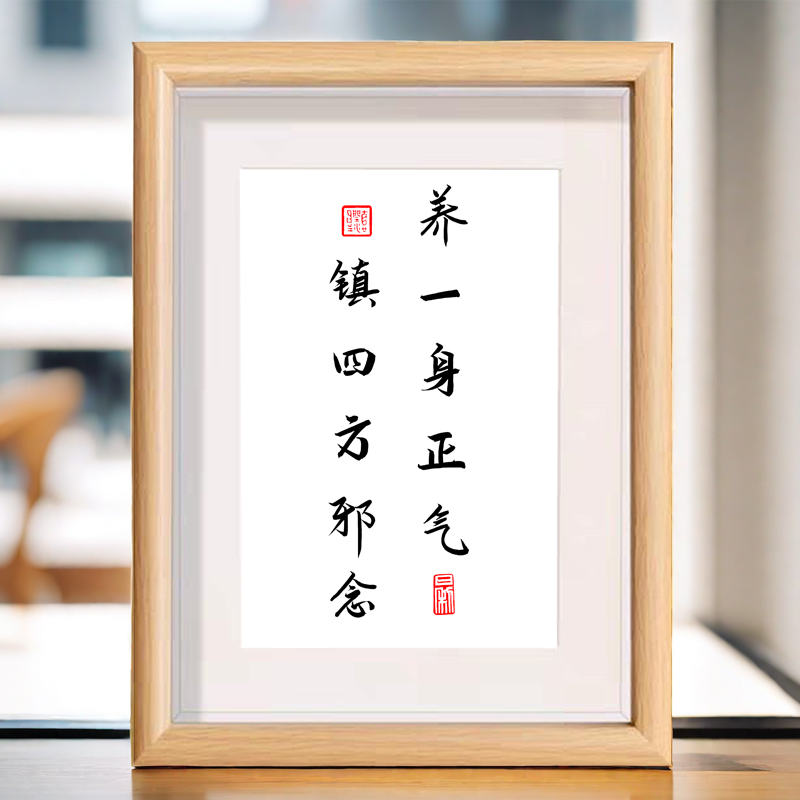 养一身正气
日新
镇四方邪念